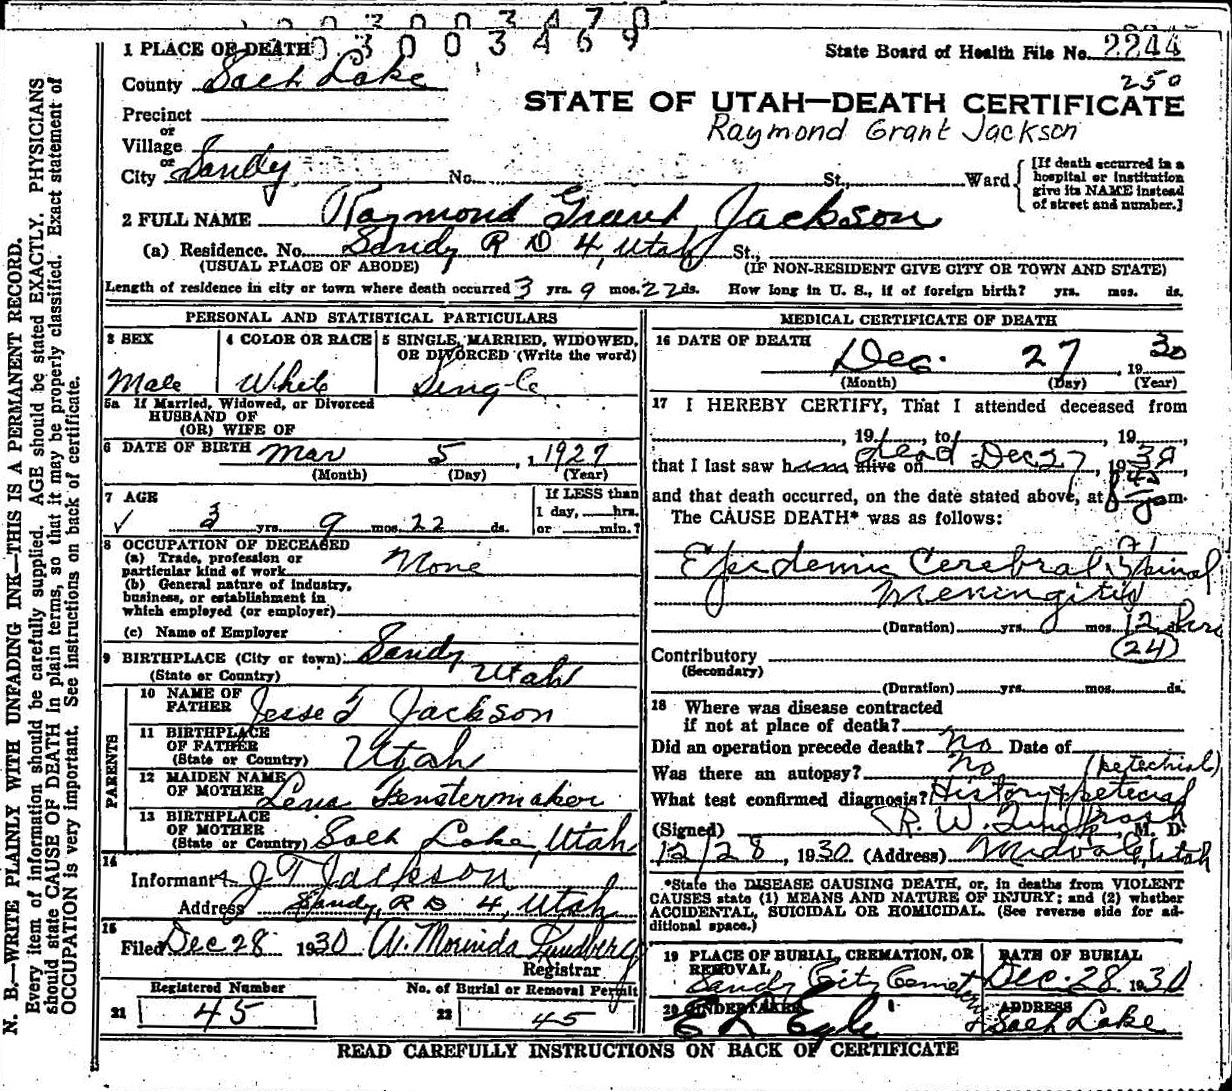 0 0 3 0 0 3 4 7 0
0 3 0 0 3 4 6 9
1 PLACE OF DEATH
State Board of Health File No. 2244
County Salt Lake
250
STATE OF UTAH—DEATH CERTIFICATE
Precinct
Raymond Grant Jackson
or
Village
or
City Sandy No. St. Ward
[If death occurred in a
hospital or institution
give its NAME instead
of street and number.]
2 FULL NAME Raymond Grant Jackson
(a) Residence. No. Sandy R D 4, Utah St.,
(USUAL PLACE OF ABODE) (IF NON-RESIDENT GIVE CITY OR TOWN AND STATE)
Length of residence in city or town where death occurred 3 yrs. 9 mos. 22 ds. How long in U. S., if of foreign birth? yrs. mos. ds.
PERSONAL AND STATISTICAL PARTICULARS
3 SEX
Male
4 COLOR OR RACE
White
5 SINGLE, MARRIED, WIDOWED,
OR DIVORCED (Write the word)
Single
5a If Married, Widowed, or Divorced
HUSBAND OF
(OR) WIFE OF
6 DATE OF BIRTH Mar 5, 1927
(Month) (Day) (Year)
7 AGE
3 yrs. 9 mos. 22 ds.
If LESS than
1 day, hrs.
or min.?
8 OCCUPATION OF DECEASED
(a) Trade, profession or
particular kind of work None
(b) General nature of industry,
business, or establishment in
which employed (or employer)
(c) Name of Employer
9 BIRTHPLACE (City or town) Sandy
(State or Country) Utah
PARENTS
10 NAME OF
FATHER Jesse T Jackson
11 BIRTHPLACE
OF FATHER
(State or Country) Utah
12 MAIDEN NAME
OF MOTHER Lena Fenstermaker
13 BIRTHPLACE
OF MOTHER
(State or Country) Salt Lake, Utah
14
Informant J T Jackson
Address Sandy, R D 4, Utah
15
Filed Dec 28 1930 A. Morinda Lundberg
Registrar
Registered Number
21 45
No. of Burial or Removal Permit
22 45
MEDICAL CERTIFICATE OF DEATH
16 DATE OF DEATH
Dec. 27, 1930
(Month) (Day) (Year)
17 I HEREBY CERTIFY, That I attended deceased from
, 19 , to , 19 ,
dead
that I last saw him alive on Dec 27, 1930,
and that death occurred, on the date stated above, at m.
The CAUSE DEATH* was as follows:
Epidemic Cerebral Spinal
Meningitis
(Duration) yrs. mos. 12 ds. hrs
Contributory (24)
(Secondary)
(Duration) yrs. mos. ds.
18 Where was disease contracted
if not at place of death?
Did an operation precede death? No Date of
Was there an autopsy? No (petechial)
What test confirmed diagnosis? History & petecial
rash
(Signed) R. W. M. D.
12/28, 1930 (Address) Midvale, Utah
*State the DISEASE CAUSING DEATH, or, in deaths from VIOLENT
CAUSES state (1) MEANS AND NATURE OF INJURY; and (2) whether
ACCIDENTAL, SUICIDAL OR HOMICIDAL. (See reverse side for ad-
ditional space.)
19 PLACE OF BURIAL, CREMATION, OR
REMOVAL
Sandy City Cemetery
DATE OF BURIAL
Dec. 28 1930
20 UNDERTAKER
ADDRESS
Salt Lake
READ CAREFULLY INSTRUCTIONS ON BACK OF CERTIFICATE
N. B.—WRITE PLAINLY WITH UNFADING INK—THIS IS A PERMANENT RECORD.
Every item of information should be carefully supplied. AGE should be stated EXACTLY. PHYSICIANS
should state CAUSE OF DEATH in plain terms, so that it may be properly classified. Exact statement of
OCCUPATION is very important. See instructions on back of certificate.